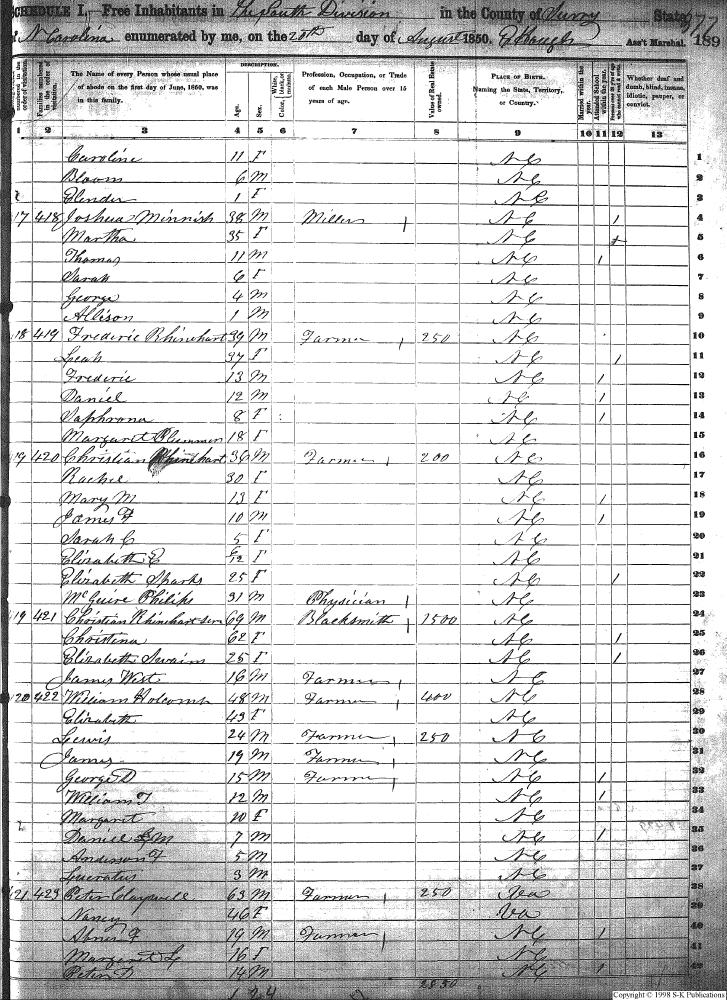 SCHEDULE I.—Free Inhabitants in The South Division in the County of Surry State
of N Carolina enumerated by me, on the 20th day of August 1850. Ass't Marshal. 189
DESCRIPTION.
The Name of every Person whose usual place of abode on the first day of June, 1850, was in this family.
Age.
Sex.
Profession, Occupation, or Trade of each Male Person over 15 years of age.
Value of Real Estate owned.
PLACE OF BIRTH.
Naming the State, Territory, or Country.
Married within the year.
Attended School within the year.
Whether deaf and dumb, blind, insane, idiotic, pauper, or convict.
1 2 3 4 5 6 7 8 9 10 11 12 13
Caroline 11 F NC 1
Bloom 6 M NC 2
Elender 1 F NC 3
17 418 Joshua Minnish 38 M Miller 1 NC 1 4
Martha 35 F NC 5
Thomas 11 M NC 1 6
Sarah 6 F NC 7
George 4 M NC 8
Allison 1 M NC 9
18 419 Frederic Rhinehart 39 M Farmer 1 250 NC 10
Leah 37 F NC 1 11
Frederic 13 M NC 1 12
Daniel 12 M NC 1 13
Saphrona 8 F NC 1 14
Margaret Plummer 18 F NC 15
19 420 Christian Rhinehart 36 M Farmer 1 200 NC 16
Rachel 30 F NC 17
Mary M 13 F NC 1 18
James F 10 M NC 1 19
Sarah C 5 F NC 20
Elizabeth E 6/12 F NC 21
Elizabeth Sparks 25 F NC 1 22
McGuire Philips 31 M Physician 1 NC 23
19 421 Christian Rhinehart senr 69 M Blacksmith 1 1500 NC 24
Christina 62 F NC 1 25
Elizabeth Swaim 25 F NC 1 26
James West 16 M Farmer 1 NC 27
20 422 William Holcomb 48 M Farmer 1 400 NC 28
Elizabeth 43 F NC 29
Lewis 24 M Farmer 1 250 NC 30
James 19 M Farmer 1 NC 31
George D 15 M Farmer 1 NC 1 32
William T 12 M NC 1 33
Margaret 20 F NC 34
Daniel M 7 M NC 1 35
Anderson F 5 M NC 36
Lucratus 3 M NC 37
21 423 Peter Claywell 63 M Farmer 1 250 Va 38
Nancy 46 F Va 39
Abner F 19 M Farmer 1 NC 1 40
Margaret L 16 F NC 41
Peter D 14 M NC 1 42
2850
Copyright © 1998 S-K Publications